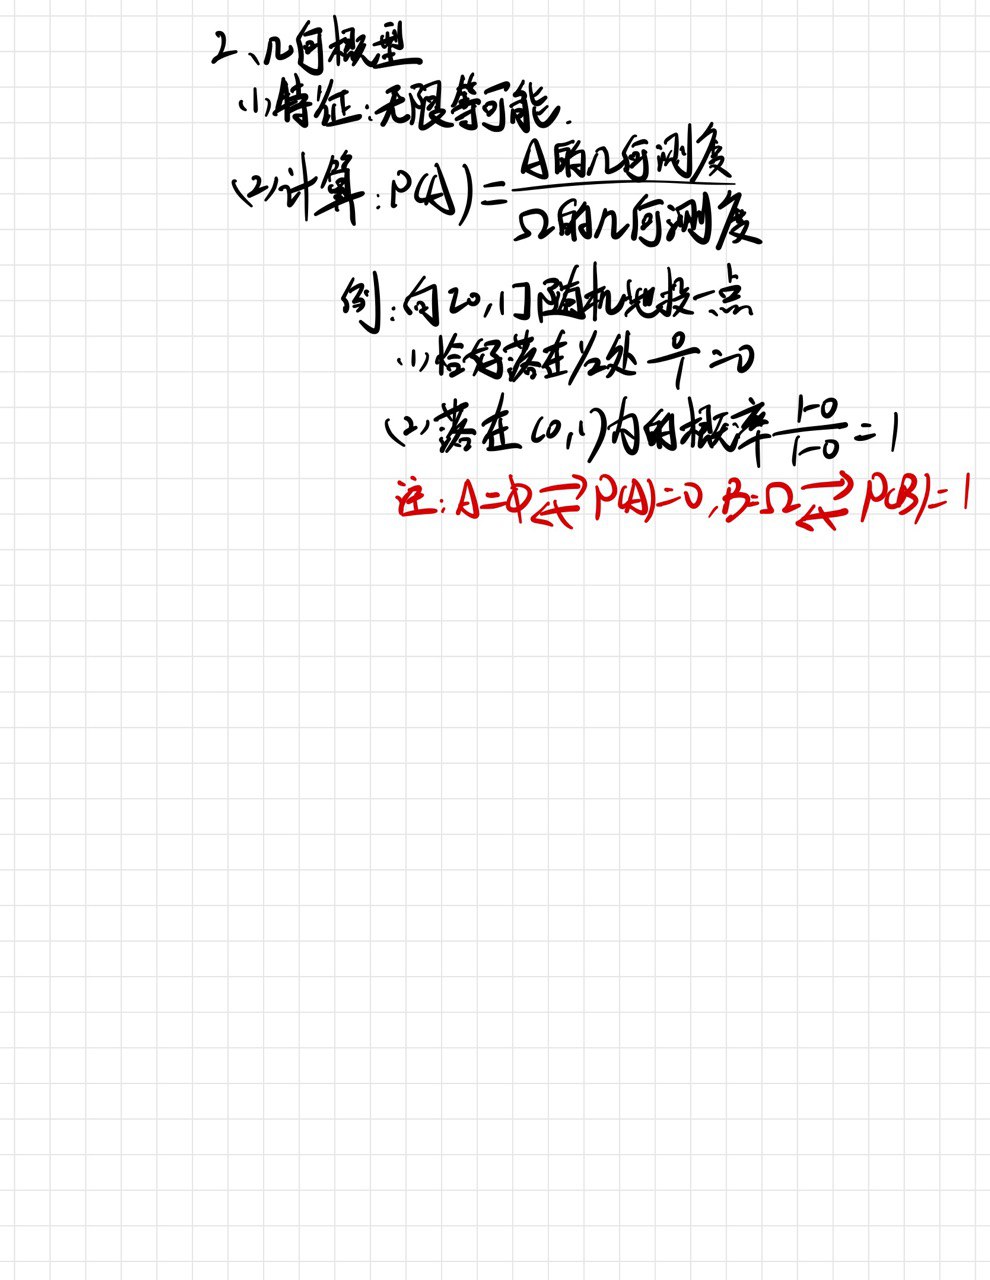 2、几何概型
(1)特征:无限等可能.
(2)计算:P(A)=A的几何测度/Ω的几何测度
例:向[0,1]随机地投一点
(1)恰好落在1/2处 0/1=0
(2)落在(0,1)内的概率 1-0/1-0=1
注:A=Φ⇄P(A)=0,B=Ω⇄P(B)=1